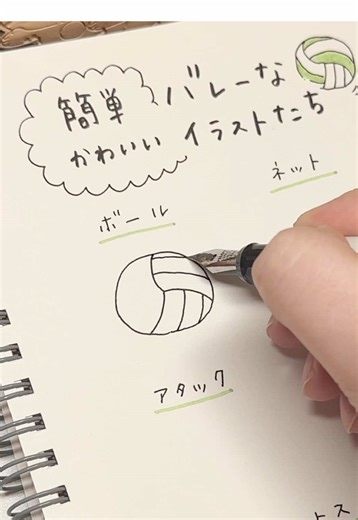 簡単 バレーな
かわいい イラストたち
ネット
ボール
アタック
トス